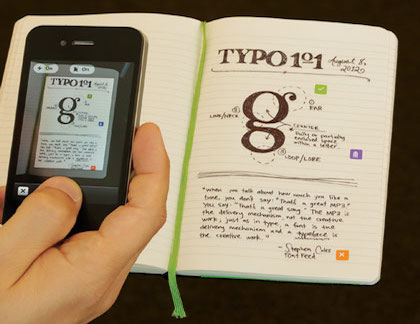 On
On
TYPO 101
g
TYPO 101
August 8,
2012
g
① EAR
② LINK/NECK
COUNTER
fully or partially
enclosed space
within a letter
③ LOOP/LOBE
"When you talk about how much you like a
tune, you don't say: "That's a great MP3"
You say: "That's a great song." The MP3 is
the delivery mechanism, not the creative
work; just as in type, a font is the
delivery mechanism and a typeface is
the creative work."
- Stephen Coles
Font Feed